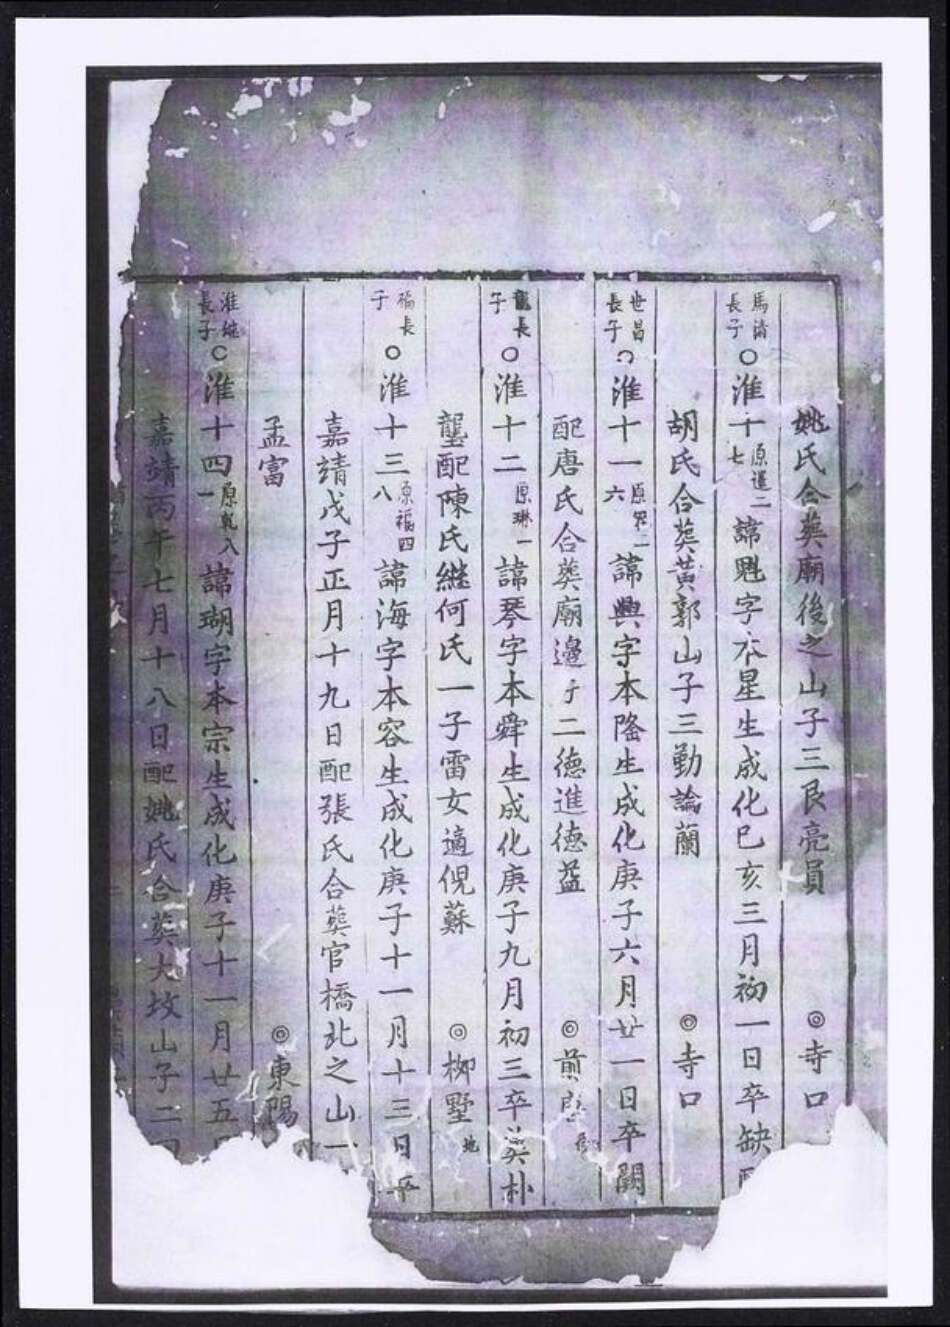 姚氏合葬廟後之山子三良亮員 ◎寺口
長子 ○淮十七 諱魁字本星生成化己亥三月初一日卒缺
胡氏合葬黃郭山子三勤論蘭 ◎寺口
世昌長子 ○淮十一六 諱興字本隆生成化庚子六月廿一日卒闕
配唐氏合葬廟邊子二德進德益 ◎前
龍長子 ○淮十二 原琳一 諱琴字本舜生成化庚子九月初三卒葬朴
龔配陳氏繼何氏一子雷女適倪蘇 ◎柳墅
福長子 ○淮十三 原福四八 諱海字本容生成化庚子十一月十三日卒
嘉靖戊子正月十九日配張氏合葬官橋北之山一
孟富 ◎東陽
淮繼長子 ○淮十四 原乾八一 諱瑚字本宗生成化庚子十一月廿五
嘉靖丙午七月十八日配姚氏合葬大坟山子二